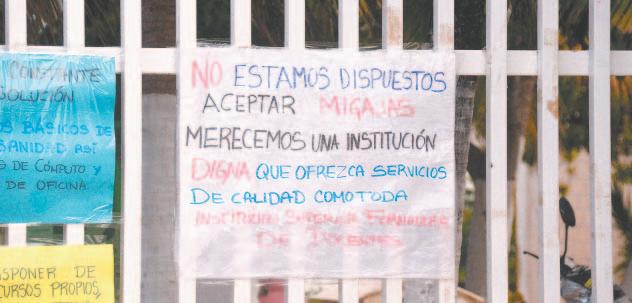 CONSTANTE
SOLUCIÓN
OS BÁSICOS DE
SANIDAD ASÍ
S DE CÓMPUTO Y
DE OFICINA
NO ESTAMOS DISPUESTOS
ACEPTAR MIGAJAS
MERECEMOS UNA INSTITUCIÓN
DIGNA QUE OFREZCA SERVICIOS
DE CALIDAD COMO TODA
INSTITUCIÓN SUPERIOR FORMADORA
DE DOCENTES
ISPONER DE
CURSOS PROPIOS,